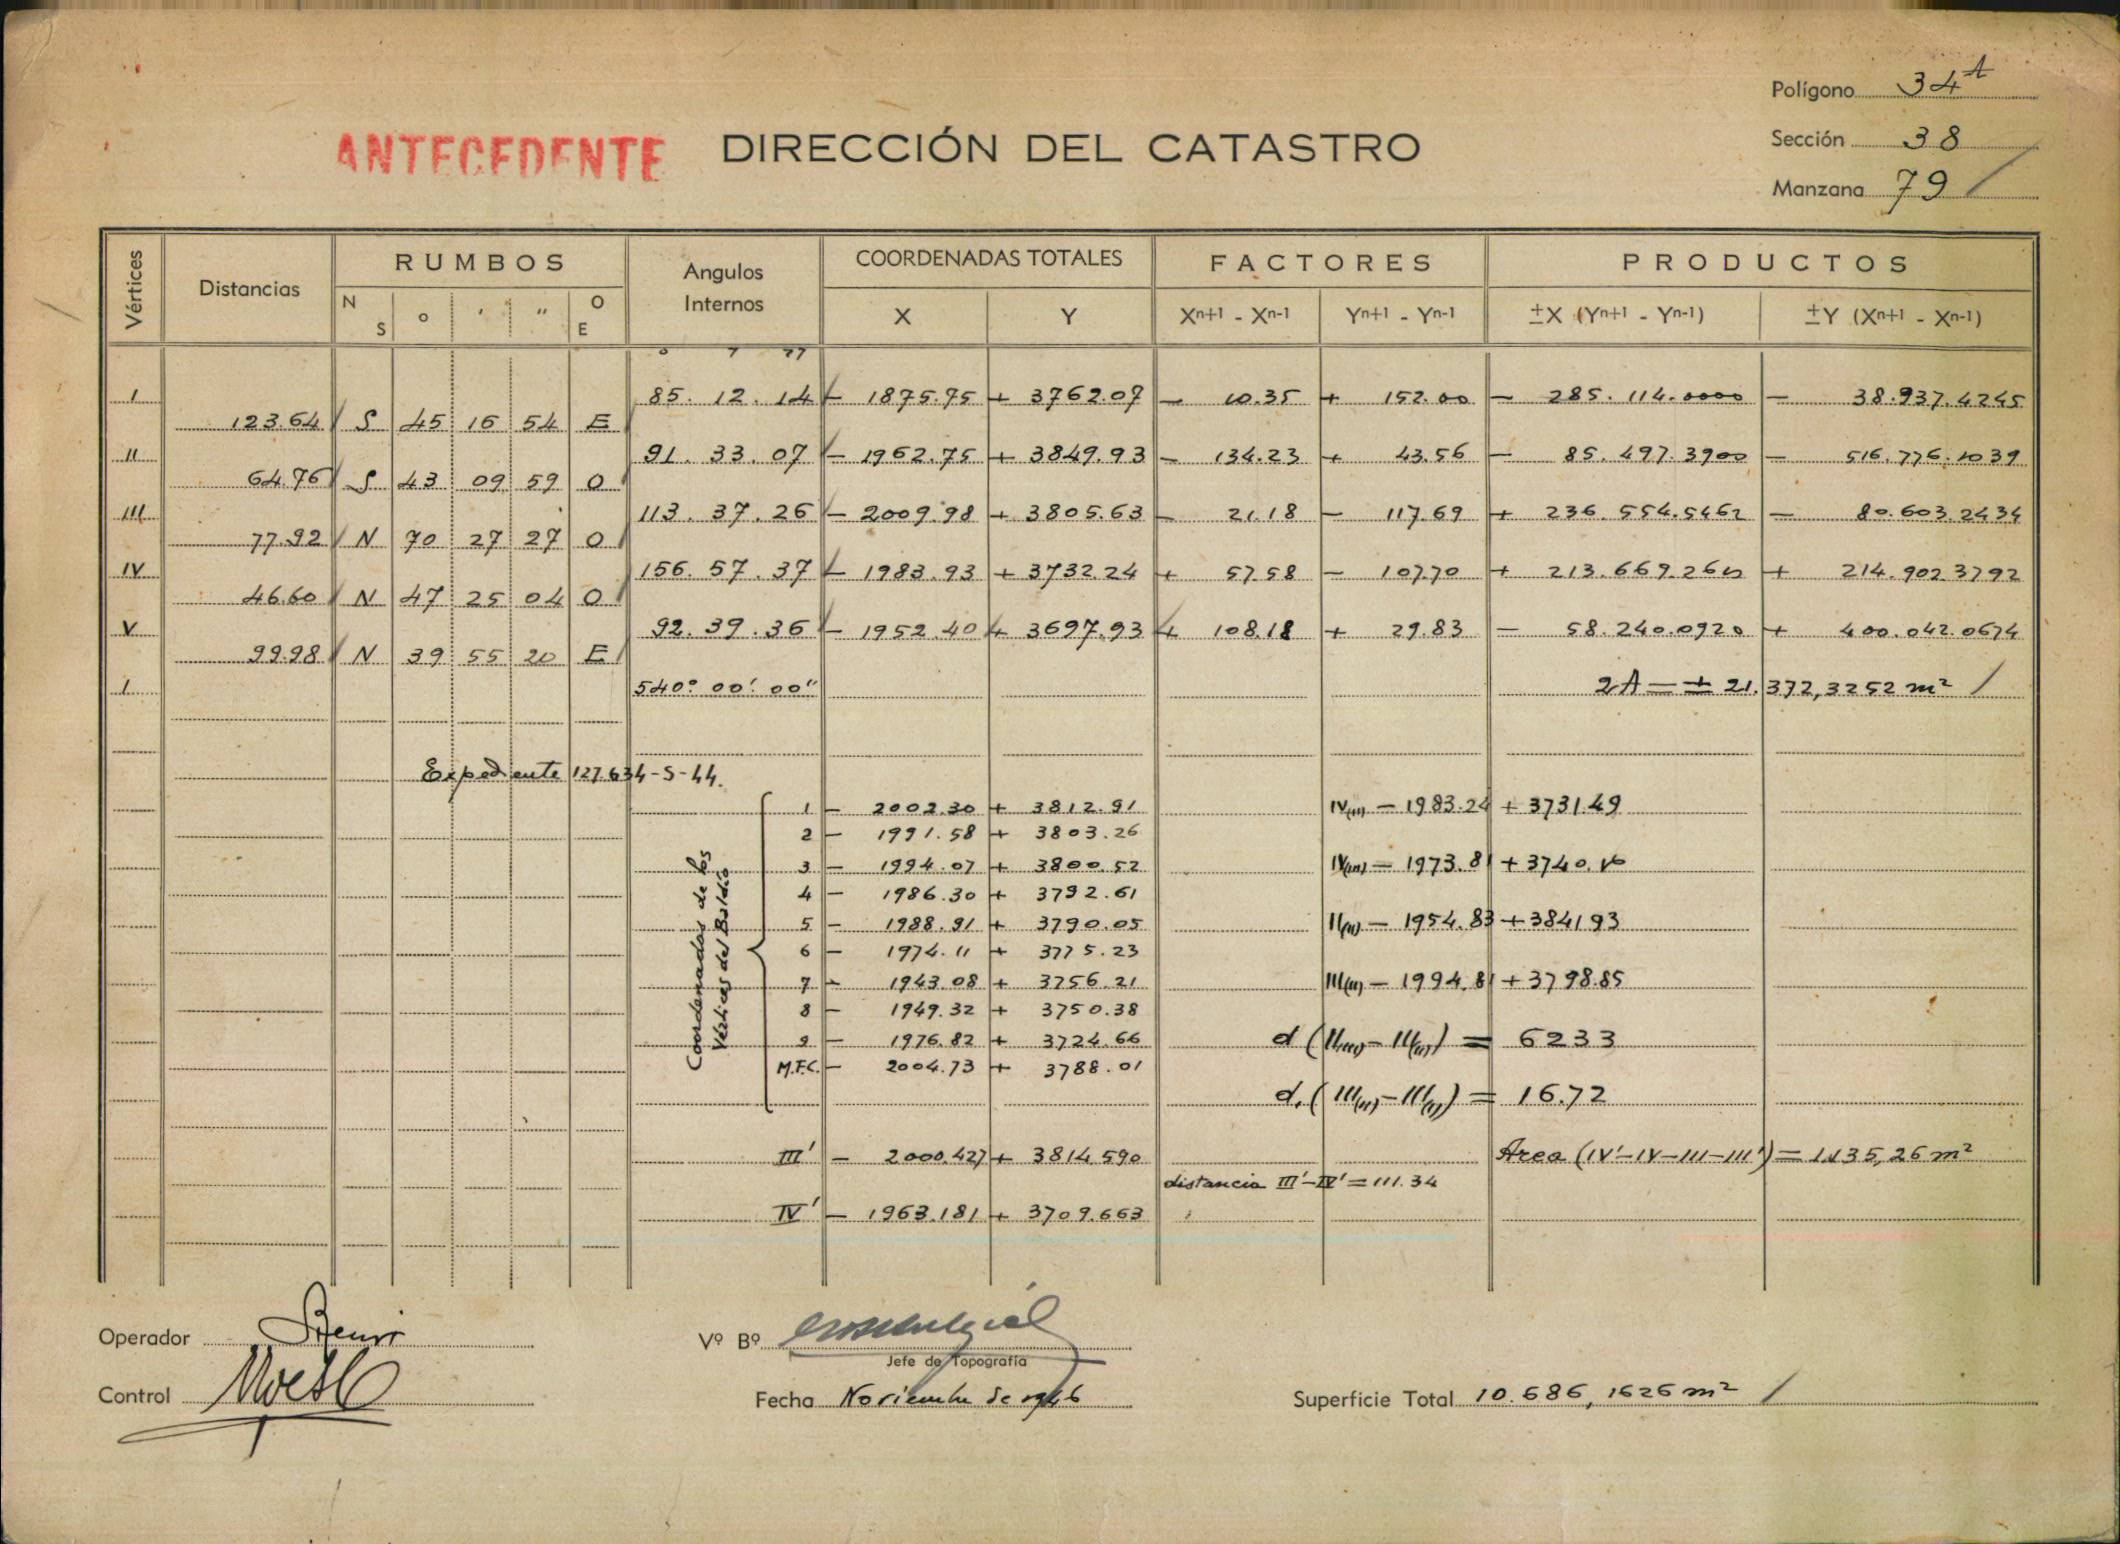 Polígono 34A
ANTECEDENTE DIRECCIÓN DEL CATASTRO
Sección 38
Manzana 79
Vértices Distancias RUMBOS Angulos Internos COORDENADAS TOTALES FACTORES PRODUCTOS
N S ° ' " O E X Y Xn+1 - Xn-1 Yn+1 - Yn-1 ±X (Yn+1 - Yn-1) ±Y (Xn+1 - Xn-1)
° ' "
I 85. 12. 14 - 1875.75 + 3762.07 - 10.35 + 152.00 - 285.114.0000 - 38.937.4245
123.64 S 45 16 54 E
II 91. 33. 07 - 1962.75 + 3849.93 - 134.23 + 43.56 - 85.497.3900 - 516.776.1039
64.76 S 43 09 59 O
III 113. 37. 26 - 2009.98 + 3805.63 - 21.18 - 117.69 + 236.554.5462 - 80.603.2434
77.92 N 70 27 27 O
IV 156. 57. 37 - 1983.93 + 3732.24 + 57.58 - 107.70 + 213.669.2610 + 214.902.3792
46.60 N 47 25 04 O
V 92. 39. 36 - 1952.40 + 3697.93 + 108.18 + 29.83 - 58.240.0920 + 400.042.0674
99.98 N 39 55 20 E
I 540° 00' 00" 2A = + 21.372,3252 m²
Expediente 127.634-S-44.
Coordenadas de los
Vértices del Baldío
1 - 2002.30 + 3812.91 IV(II) - 1983.24 + 3731.49
2 - 1991.58 + 3803.26
3 - 1994.07 + 3800.52 IV(III) - 1973.81 + 3740.10
4 - 1986.30 + 3792.61
5 - 1988.91 + 3790.05 II(II) - 1954.83 + 3841.93
6 - 1974.11 + 3775.23
7 - 1943.08 + 3756.21 III(II) - 1994.81 + 3798.85
8 - 1949.32 + 3750.38
9 - 1976.82 + 3724.66 = 6233
M.F.C. - 2004.73 + 3788.01
= 16.72
III' - 2000.427 + 3814.590 Area (IV'-IV-III-III') = 1.135,26 m²
distancia III'-IV' = 111.34
IV' - 1963.181 + 3709.663
Operador
Vº Bº
Jefe de Topografía
Control
Fecha Noviembre de 1946
Superficie Total 10.686,1626 m²